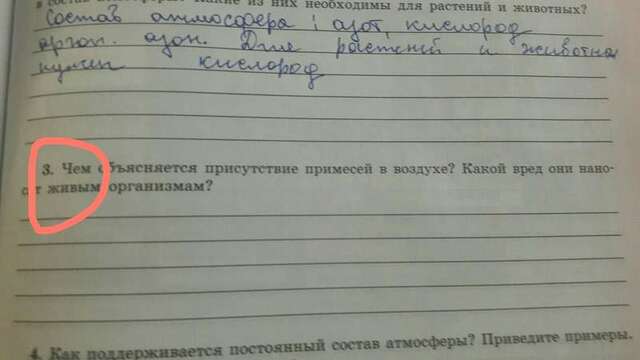 в состав атмосферы? Какие из них необходимы для растений и животных?
Состав атмосфера; азот, кислород
аргон. азон. Для растений и животны
нужен кислород
3. Чем объясняется присутствие примесей в воздухе? Какой вред они нано-
сят живым организмам?
4. Как поддерживается постоянный состав атмосферы? Приведите примеры.